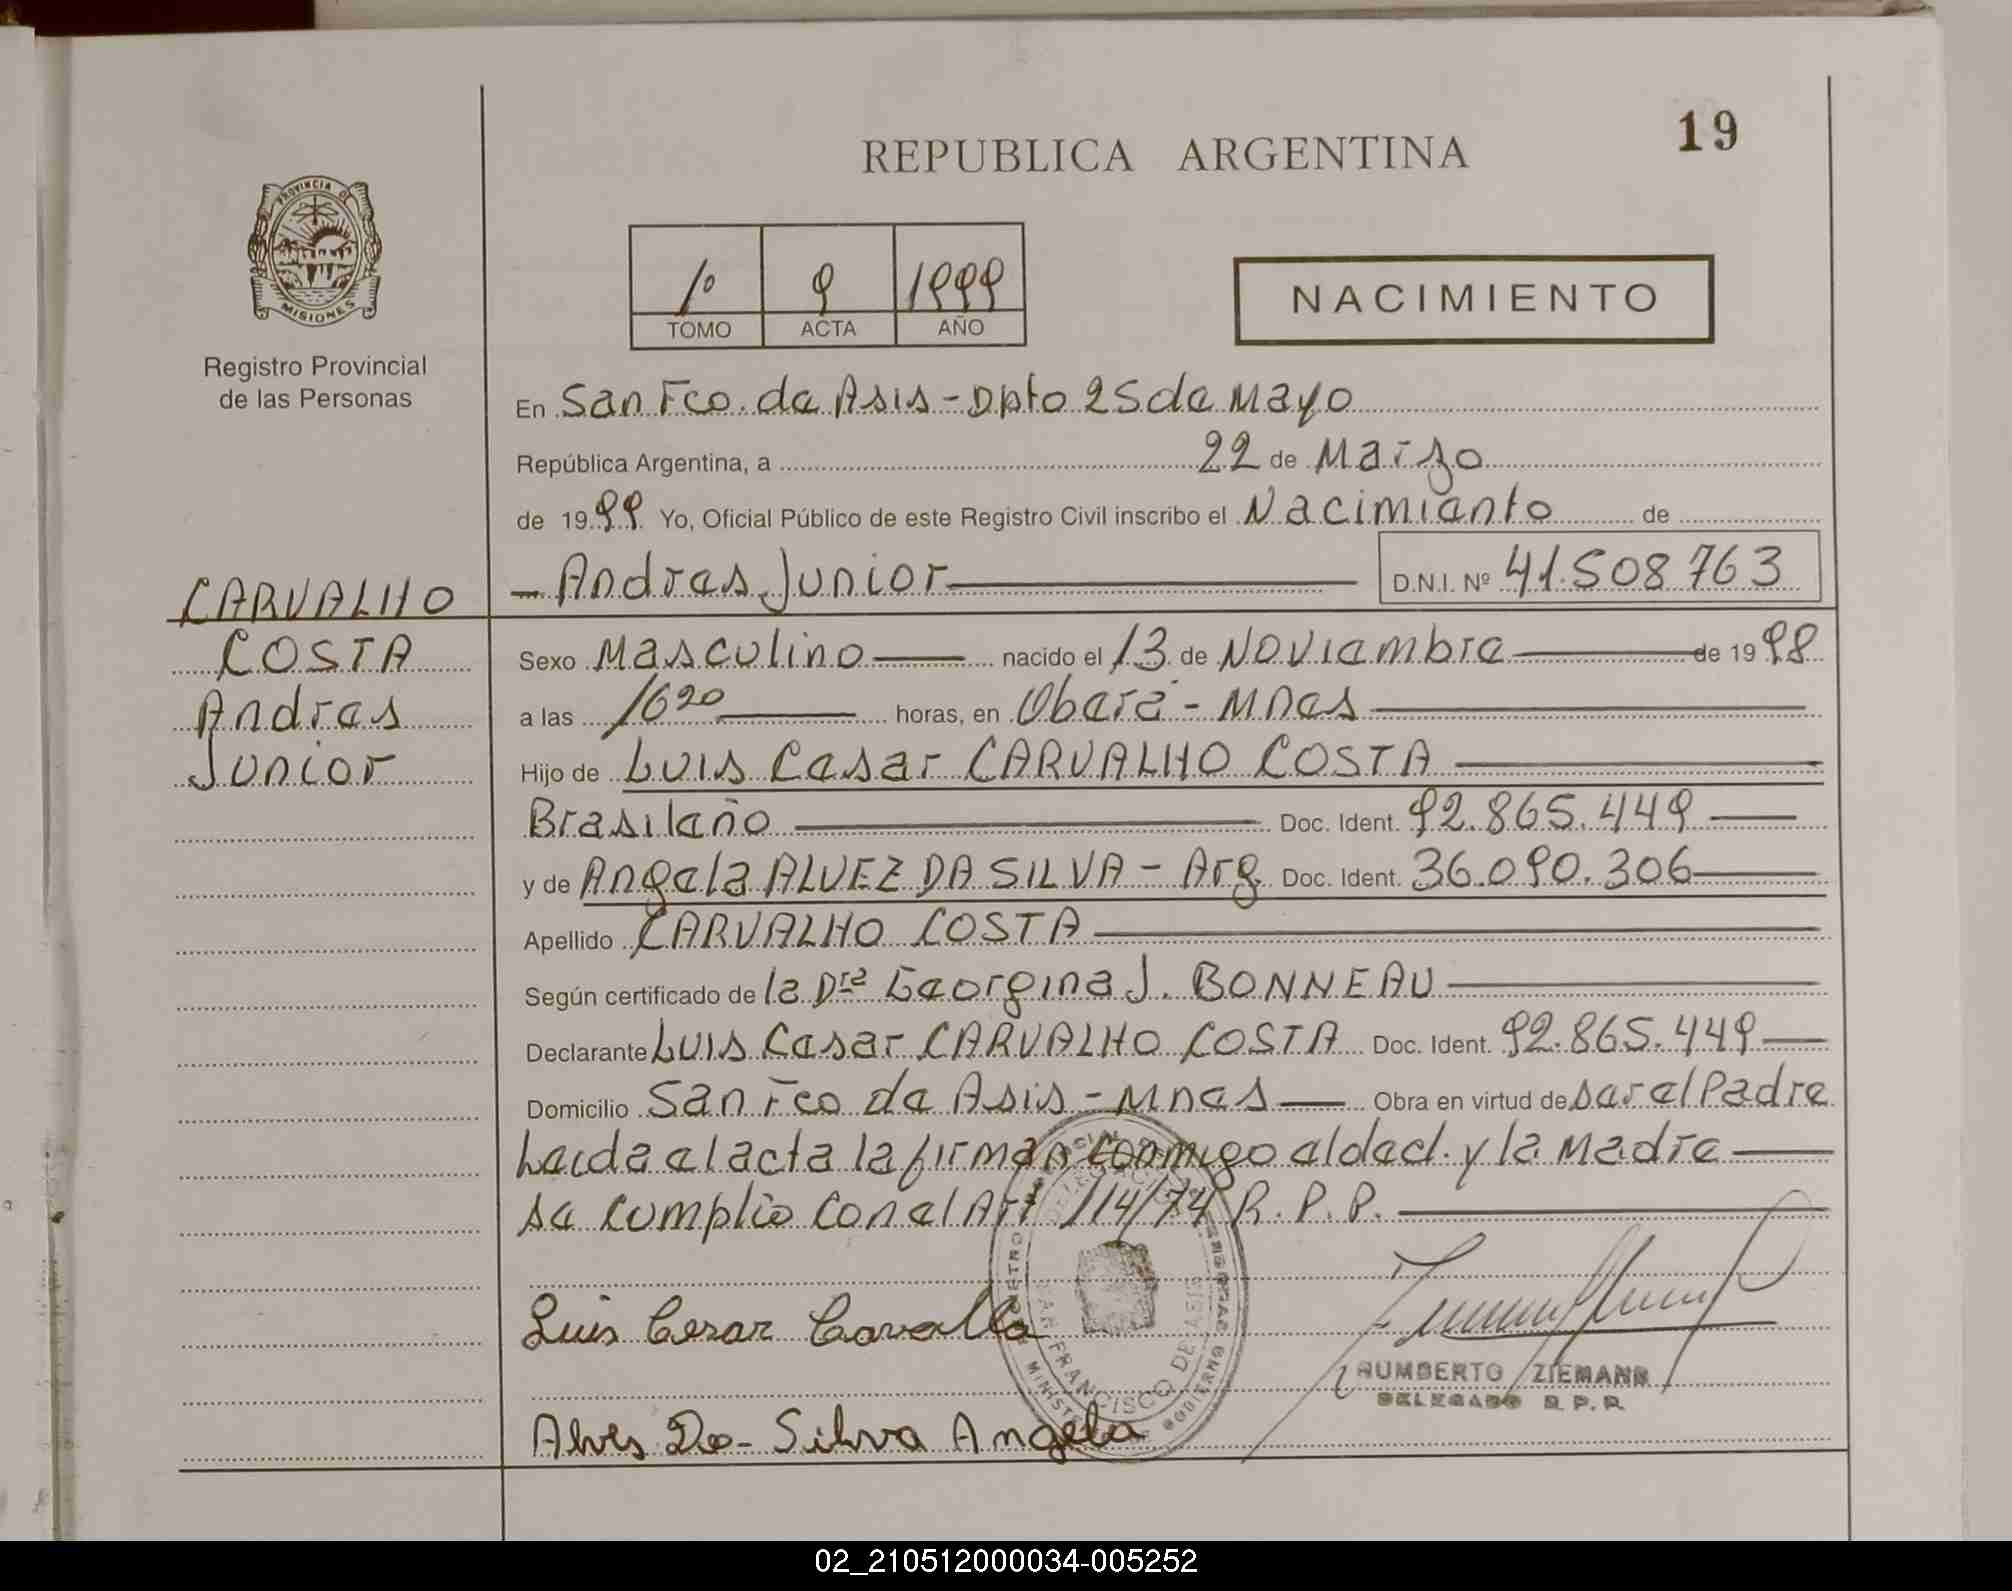 19
REPUBLICA ARGENTINA
PROVINCIA DE
MISIONES
Registro Provincial
de las Personas
1º 9 1999
TOMO ACTA AÑO
NACIMIENTO
En San Fco. de Asis - Dpto 25 de Mayo
República Argentina, a 22 de Marzo
de 1999 Yo, Oficial Público de este Registro Civil inscribo el Nacimiento de
CARVALHO
COSTA
Andres
Junior
- Andres Junior D.N.I. Nº 41.508.763
Sexo Masculino nacido el 13 de Noviembre de 1998
a las 16 20 horas, en Oberá - Mnes
Hijo de Luis Cesar CARVALHO COSTA
Brasileño Doc. Ident. 92.865.449
y de Angela ALVEZ DA SILVA - Arg Doc. Ident. 36.090.306
Apellido CARVALHO COSTA
Según certificado de la Dra Georgina J. BONNEAU
Declarante Luis Cesar CARVALHO COSTA Doc. Ident. 92.865.449
Domicilio San Fco de Asis - Mnes Obra en virtud de ser el Padre
Leida el acta la firman conmigo el decl. y la Madre
se cumplio con el Art 114/74 R. P. P.
Luis Cesar Carvalho
HUMBERTO ZIEMANN
DELEGADO R. P. P.
SAN FRANCISCO DE ASIS
Alves Da - Silva Angela
02_210512000034-005252